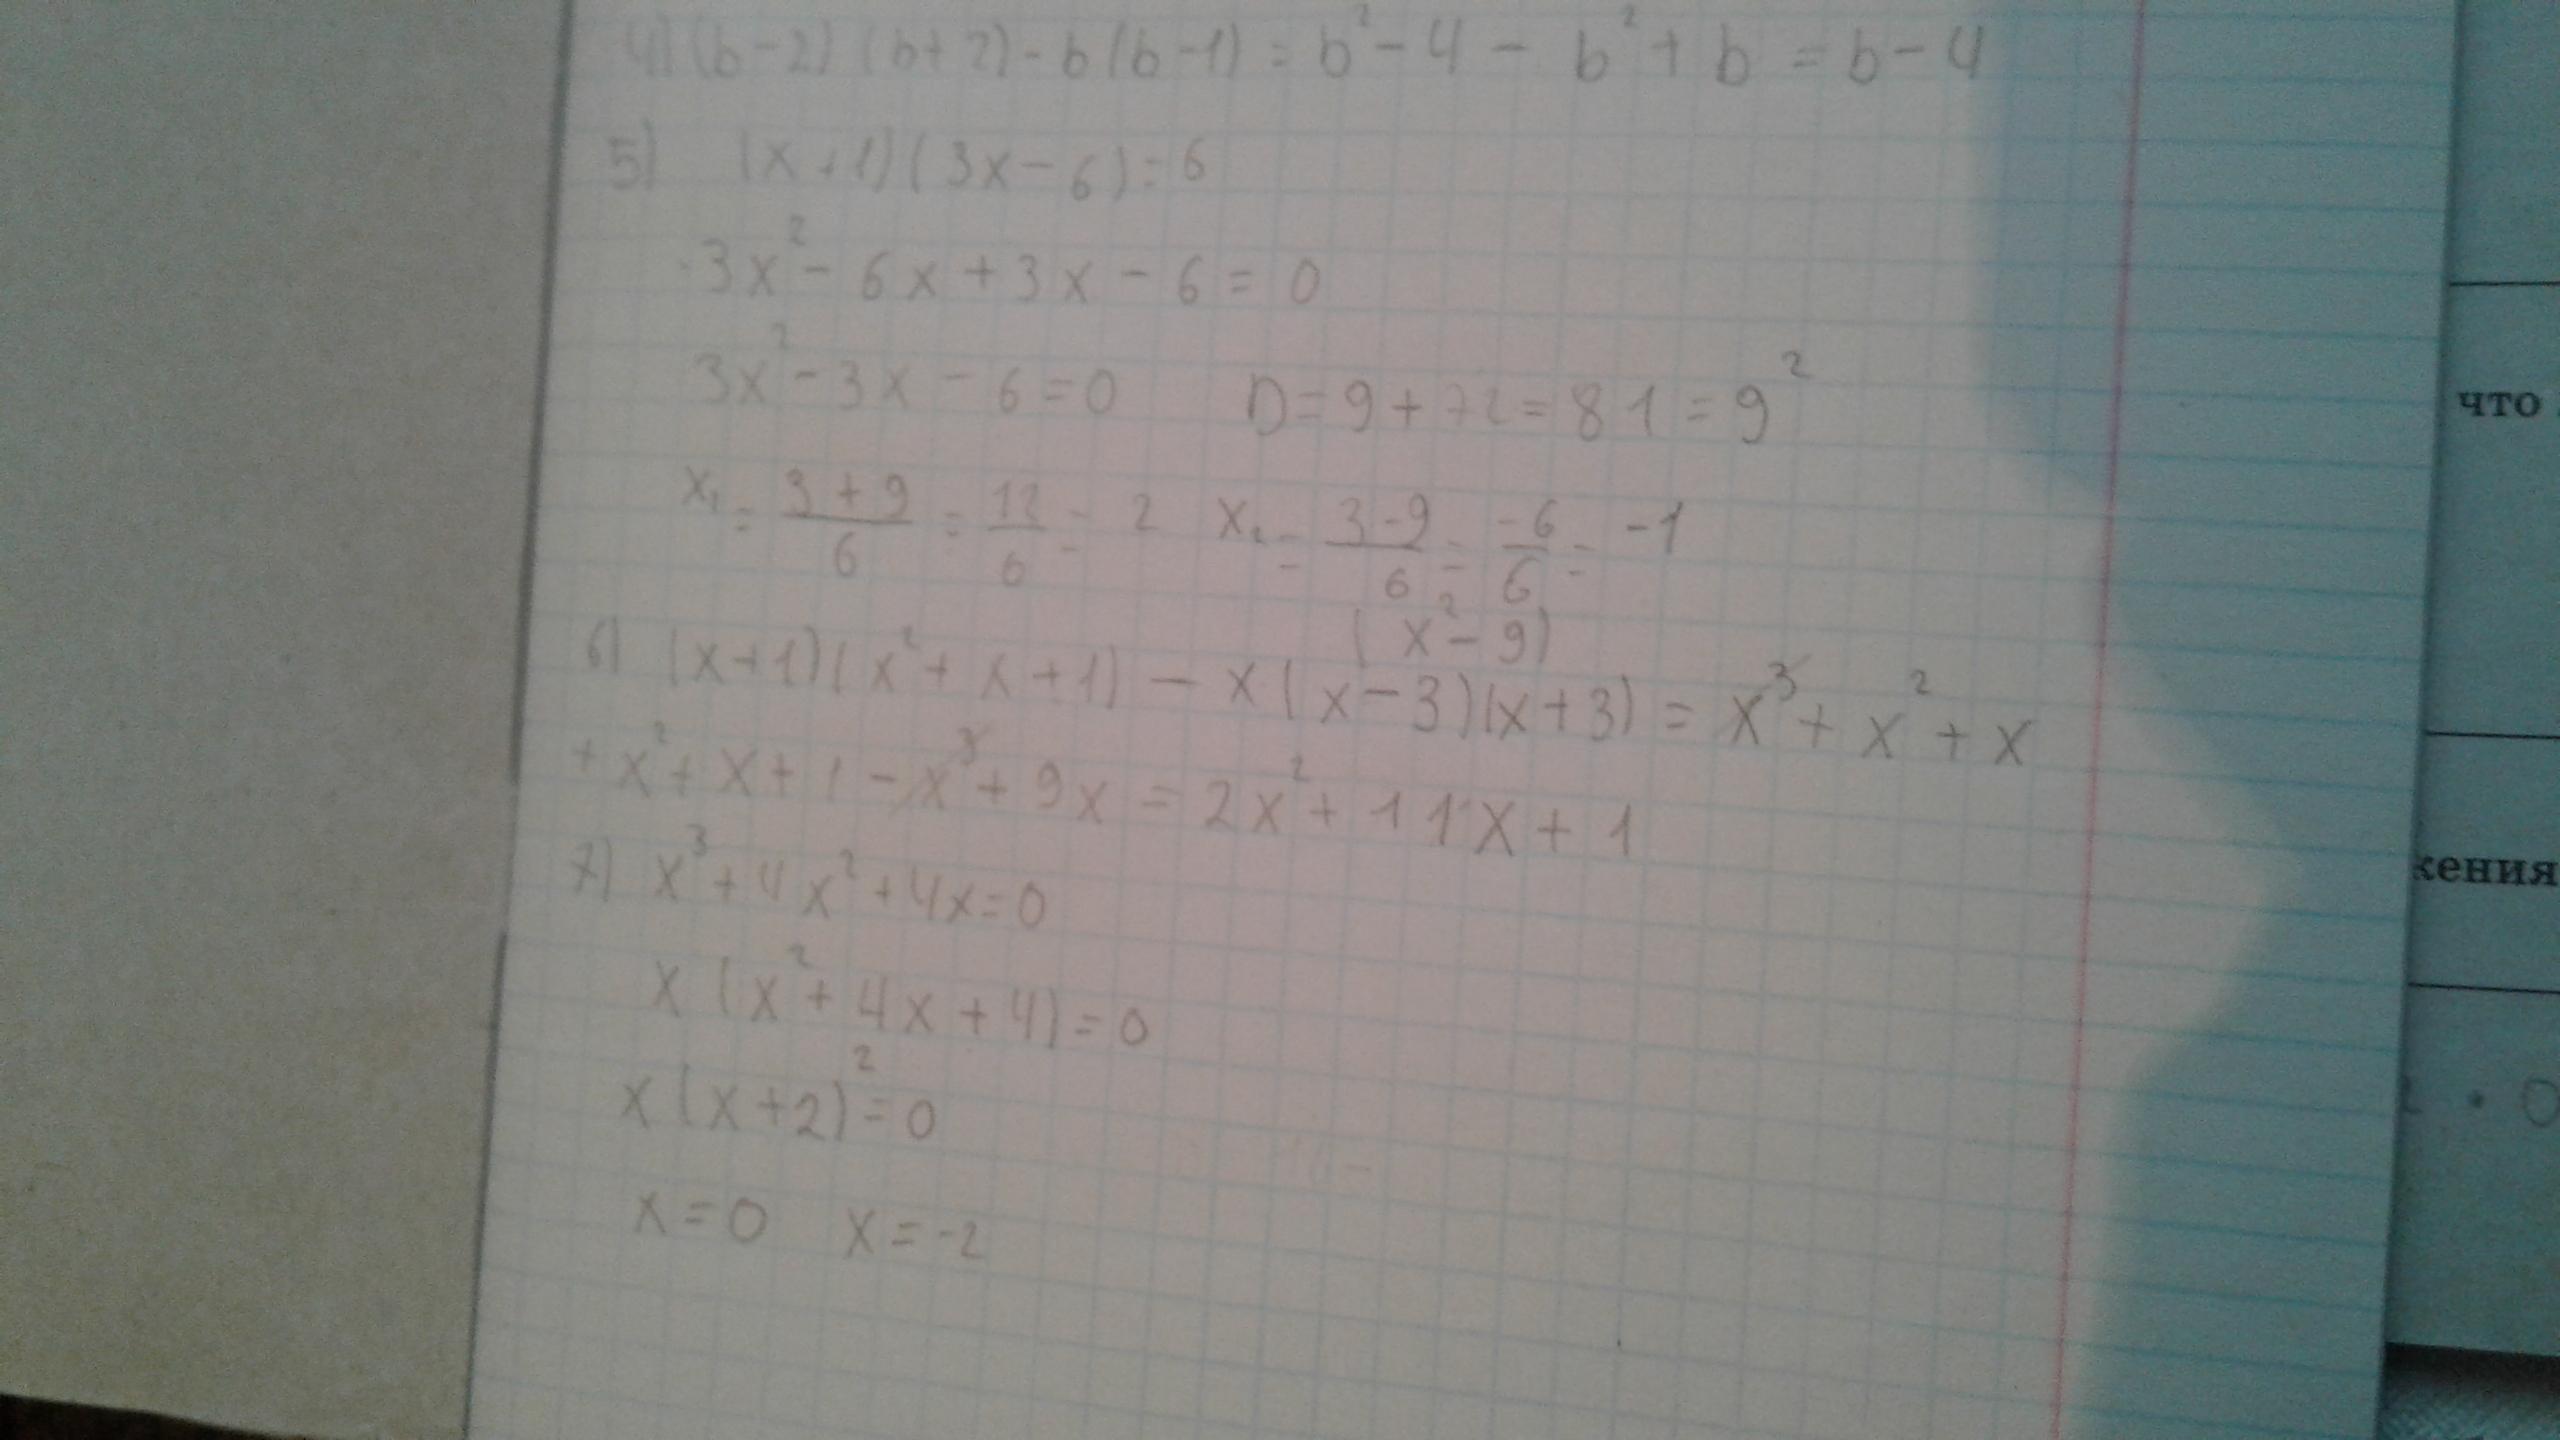 4) (b-2)(b+2)-b(b-1) = b²-4 - b²+b = b-4
5) (x+1)(3x-6)=6
3x²-6x+3x-6=0
что
3x²-3x-6=0 D=9+72=81=9²
x₁ = 3+9/6 = 12/6 = 2 x₂ = 3-9/6 = -6/6 = -1
(x²-9)
6) (x+1)(x²+x+1) - x(x-3)(x+3) = x³+x²+x
+x²+x+1-x³+9x = 2x²+11x+1
жения
7) x³+4x²+4x=0
x(x²+4x+4)=0
x(x+2)²=0
x=0 x=-2